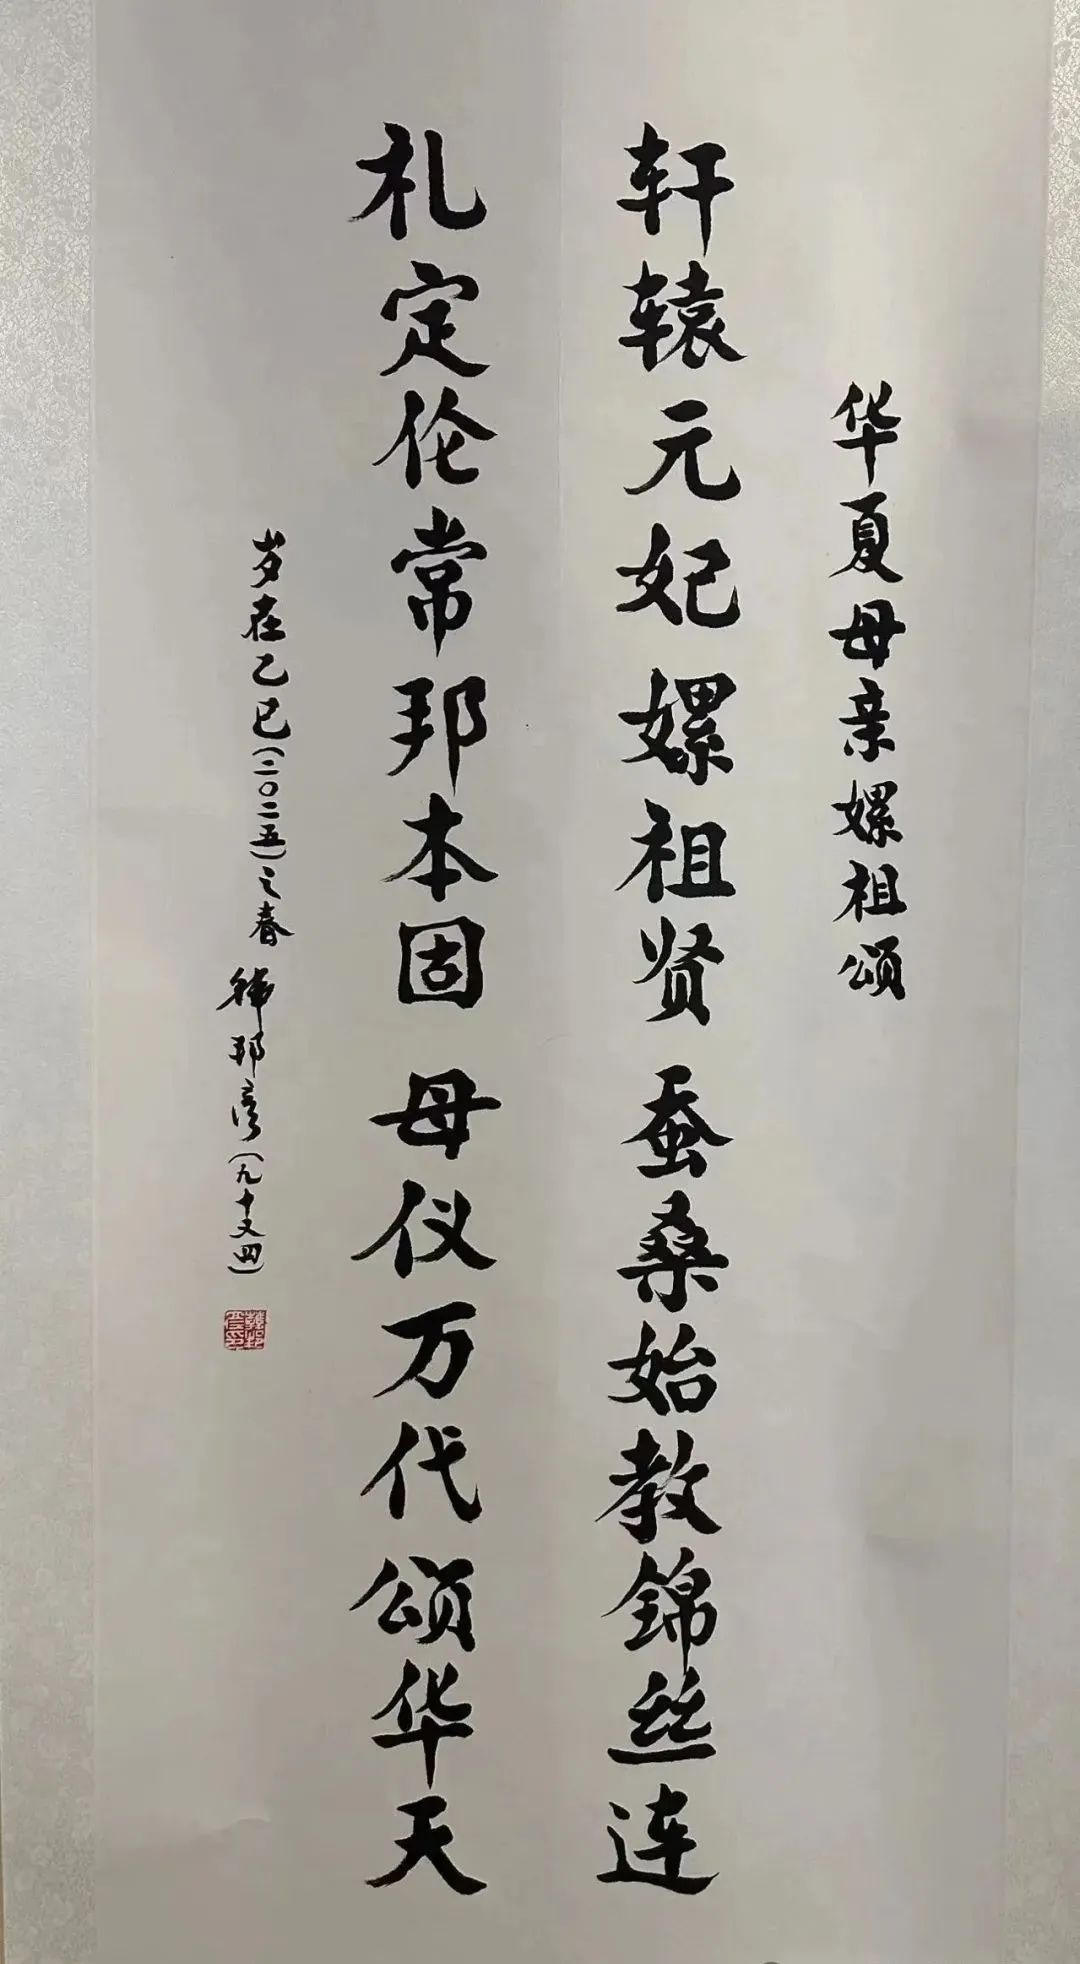 华夏母亲嫘祖颂
轩辕元妃嫘祖贤 蚕桑始教锦丝连
札定伦常邦本固 母仪万代颂华天
岁在乙巳(二〇二五)之春 韩邦彦(九十又四)